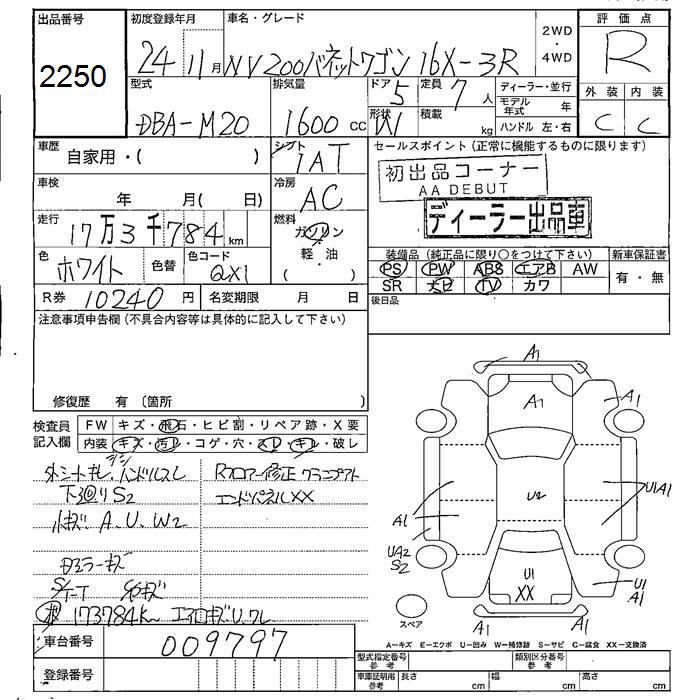 出品番号 初度登録年月 車名・グレード 2WD・4WD 評価点
2250 24 11月 NV200バネットワゴン 16X-3R R
型式 排気量 ドア 5 定員 7人 ディーラー・並行 外装 内装
DBA-M20 1600cc 形状 W 積載 kg モデル年式 年 C C
ハンドル 左・右
車歴 自家用・( ) シフト IAT セールスポイント(正常に機能するものに限ります)
初出品コーナー
AA DEBUT
車検 年 月( 日) 冷房 AC
ディーラー出品車
走行 17万3千784km 燃料 ガソリン・軽・油 ( )
色 ホワイト 色替 色コード QX1
装備品(純正品に限り○をつけて下さい) 新車保証書
PS PW ABS エアB AW 有・無
SR ナビ TV カワ
R券 10240円 名変期限 月 日
後日品
注意事項申告欄(不具合内容等は具体的に記入して下さい)
修復歴 有(箇所 )
検査員記入欄 FW キズ・飛石・ヒビ割・リペア跡・X要
内装 キズ・汚レ・コゲ・穴・スレ・キレ・破レ
外シートキレ、ハンドルスレ
下廻りS2
小キズ A.U.W2
Rフロアー修正
エンドパネルXX
173784K
A1
A1
A1
U2
A1
U1A1
UA2
S2
U1
XX
U1
A1
A1
A1
スペア
A－キズ E－エクボ U－凹み W－補修跡 S－サビ C－腐食 XX－交換済
車台番号 009797
型式指定番号 参考 類別区分番号 参考
登録番号 車庫証明用 参考 長さ cm 幅 cm 高さ cm